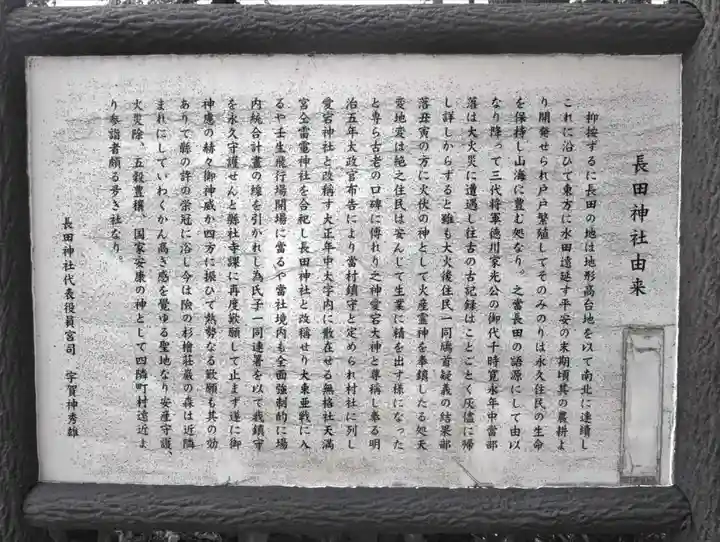 長田神社由来
抑按ずるに長田の地は地形高台地を以て南北に連續し
これに沿ひて東方に水田遠延す平安の末期頃其の農耕よ
り開発せられ戸戸繁殖してそのみのりは永久住民の生命
を保持し山海に豊む処なり。之當長田の語源にして由以
なり降って三代将軍徳川家光公の御代千時寛永年中當部
落は大火災に遭遇し往古の古記録はことごとく灰儘に帰
し詳しからずると雖も大火後住民一同鳩首疑義の結果部
落丑寅の方に火伏の神として火産霊神を奉鎮したる処天
変地変は絶之住民は安んじて生業に精を出す様になった
と専ら古老の口碑に傳れり之神愛宕大神と尊稱し奉る明
治五年太政官布告により當村鎮守と定められ村社に列し
愛宕神社と改稱す大正年中大字内に散在せる無格社天満
宮仝雷電神社を合祀し長田神社と改稱せり大東亜戦に入
るや壬生飛行場開場に當るや當社境内も全面強制的に場
内統合計畫の線を引かれし為氏子一同連署を以て我鎮守
を永久守護せんと縣社寺課に再度歎願して止まず遂に御
神慮の赫々御神威か四方に振ひて熱勢なる歎願も其の効
ありて縣の許の栄冠に浴し今は険の杉檜荘厳の森は近隣
まれにしていわくかん高き感を覺ゆる聖地なり安産守護、
火災除、五穀豊穣、国家安康の神として四隣町村遠近よ
り参詣者頗る多き社なり。
長田神社代表役員宮司 宇賀神秀雄